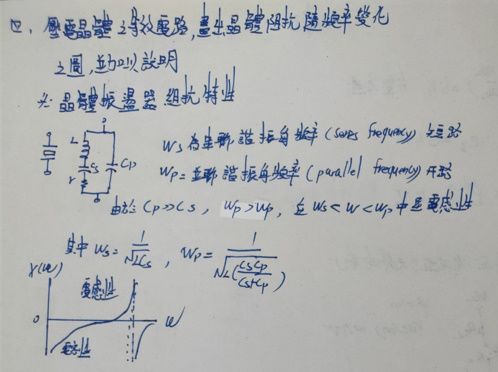 四、壓電晶體之等效電路,畫出晶體阻抗隨頻率變化
之圖,並加以說明
※晶體振盪器組抗特性
L
Cs
r
Cp
Ws為串聯諧振角頻率(series frequency)
Wp=並聯諧振角頻率(parallel frequency)開路
由於Cp>>Cs, Wp>Wp, 在Ws<W<Wp中是電感性
其中Ws=1/√LCs, Wp=1/√L(CsCp/Cs+Cp)
X(w)
電感性
0
W
電容性